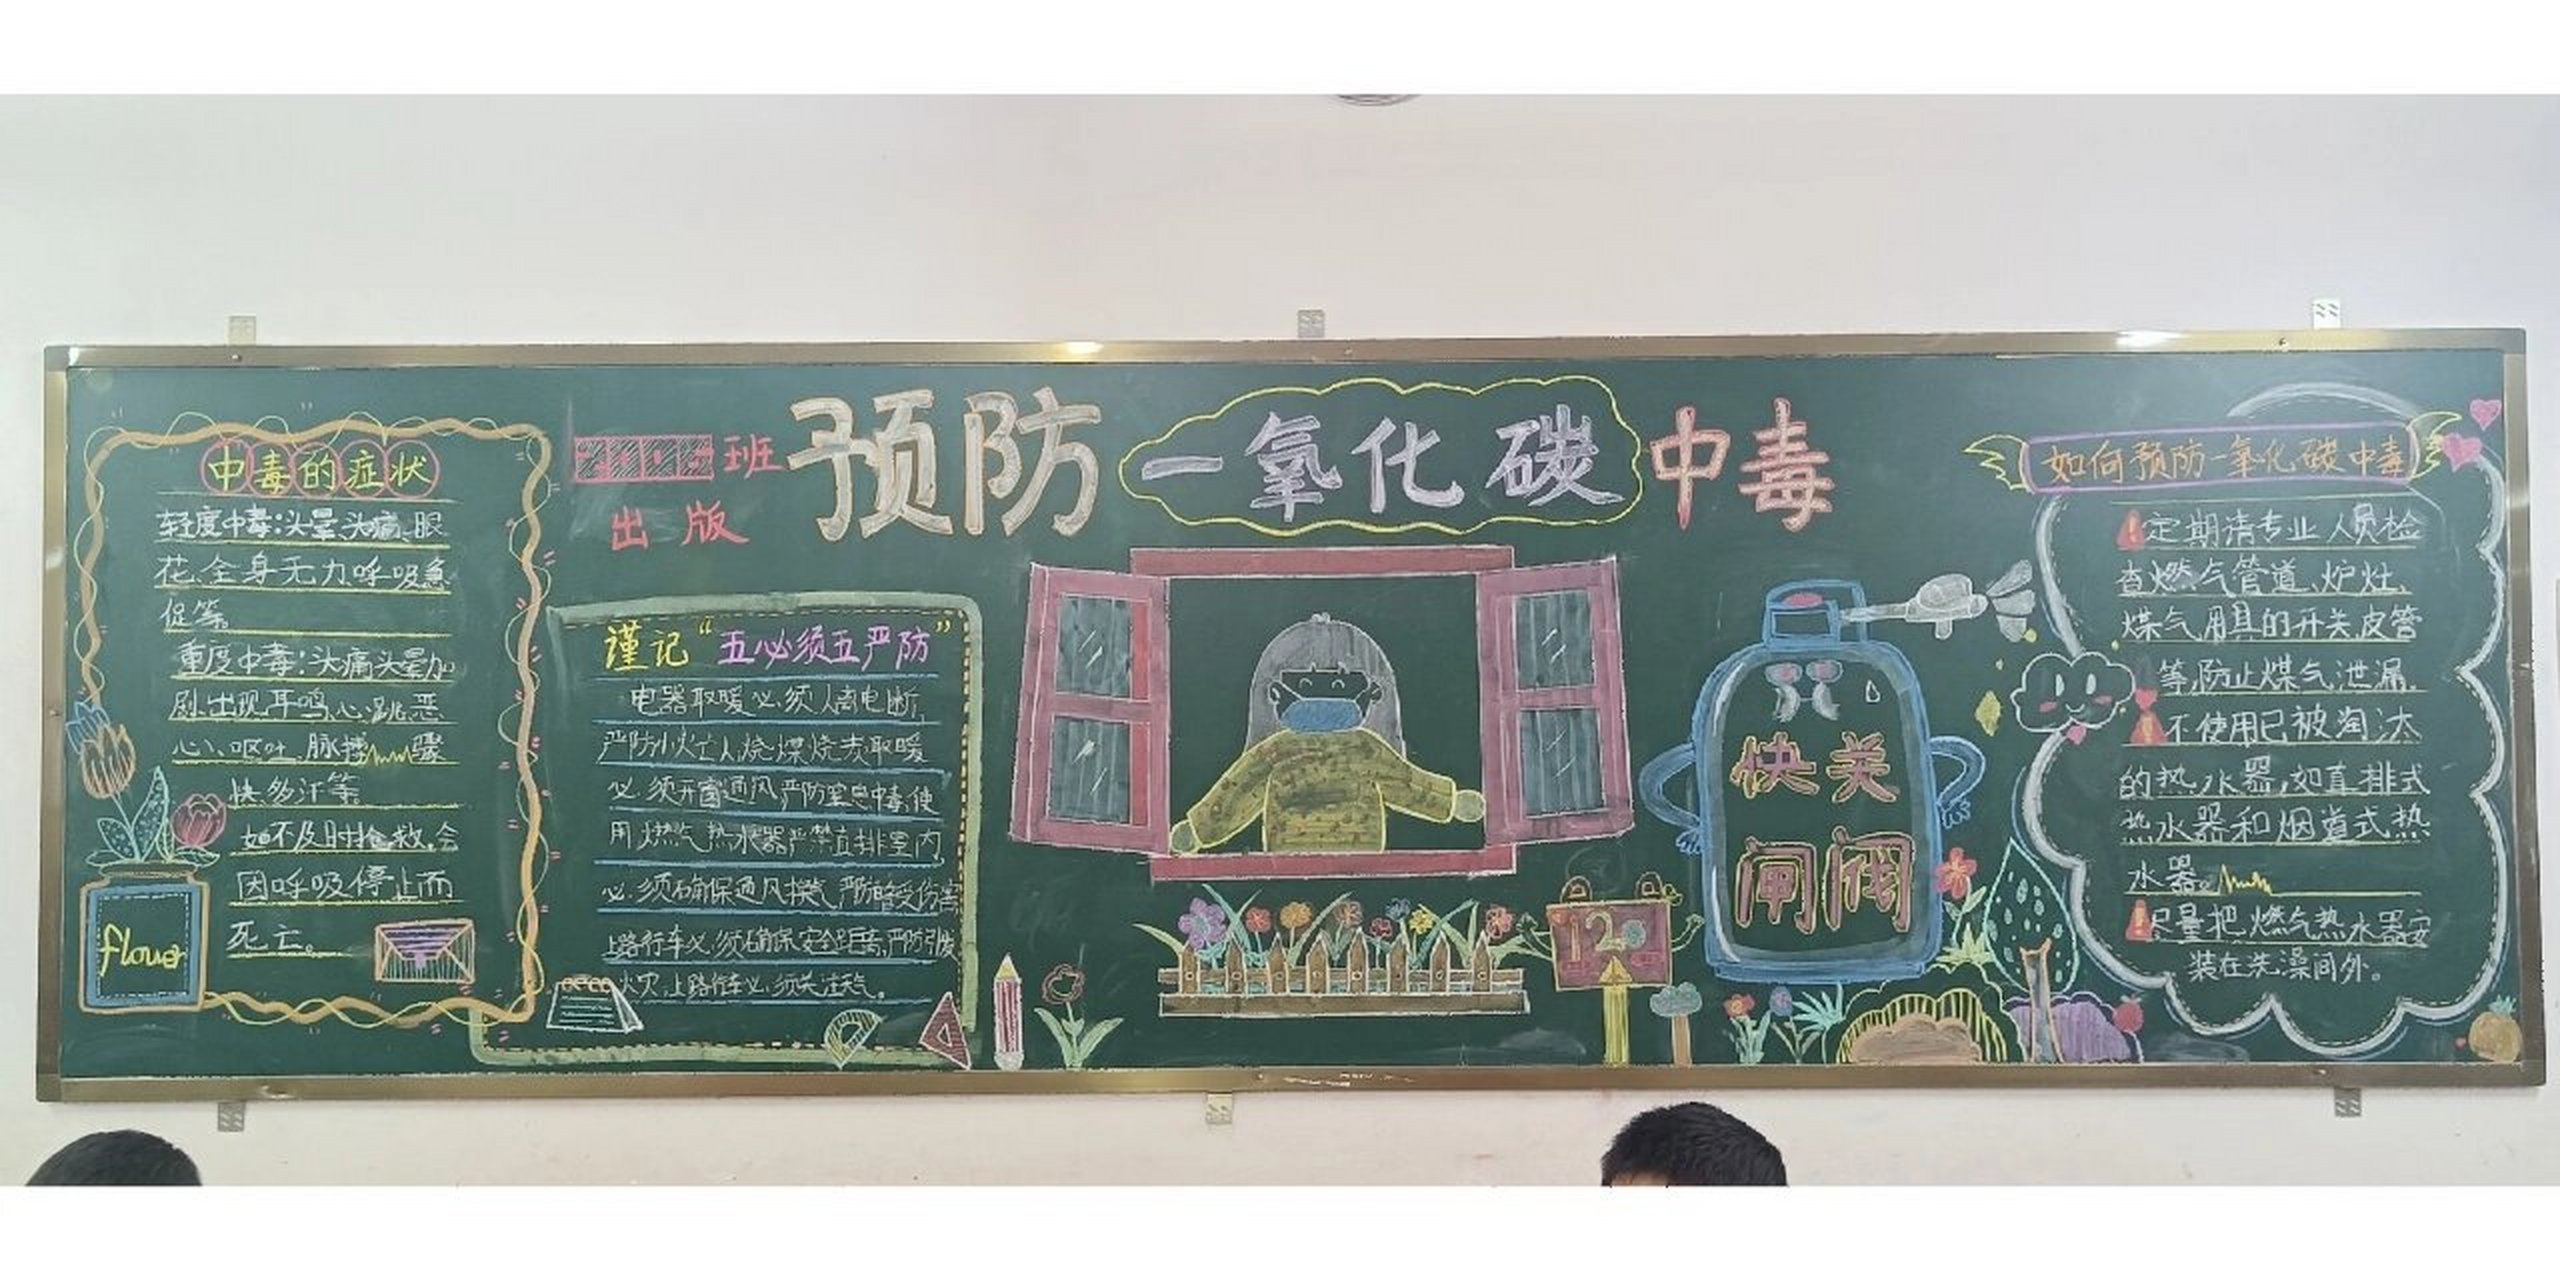 预防一氧化碳中毒
班
出版
中毒的症状
轻度中毒:头晕、头痛、眼
花、全身无力、呼吸急
促等。
重度中毒:头痛头晕加
剧、出现耳鸣、心跳、恶
心、呕吐、脉搏骤
快、多汗等。
如不及时抢救,会
因呼吸停止而
死亡。
flower
谨记“五必须五严防”
电器取暖必须人离电断,
严防小火亡人烧煤烧炭取暖
必须开窗通风严防室息中毒,使
用燃气热水器严禁直排室内
必须确保通风换气严防酷受伤害
上路行车必须确保安全距离,严防引发
火灾,上路行车必须关注天气。
快关
闸阀
120
如何预防一氧化碳中毒
定期请专业人员检
查燃气管道、炉灶、
煤气用具的开关皮管
等,防止煤气泄漏。
不使用已被淘汰
的热水器,如直排式
热水器和烟道式热
水器。
尽量把燃气热水器安
装在洗澡间外。